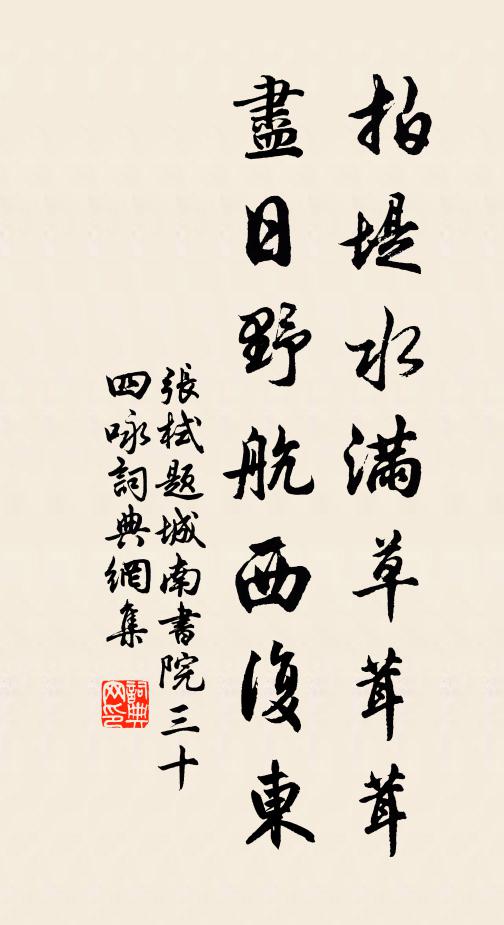 拍堤水滿草茸茸
盡日野航西復東
張栻題城南書院三十
四咏詞典網集
詞典
网印